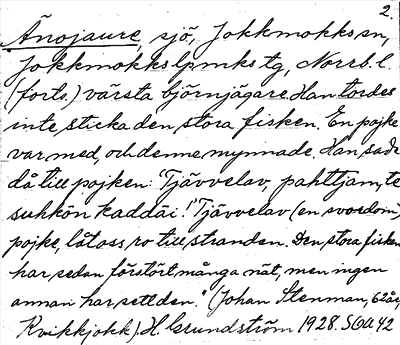 2.
Änojaure, sjö, Jokkmokks sn,
Jokkmokks lpmks tg, Norrb. l.
(forts.) värsta björnjägare. Han tordes
inte sticka den stora fisken. En pojke
var med, och denne mynnade. Han sade
då till pojken: "Tjävvelav, pahttjam, te
suhkön kaddai!" Tjävvelav (en svordom),
pojke, låt oss ro till stranden. Den stora fisken
har sedan förstört många nät, men ingen
annan har sett den." (Johan Stenman, 62 år,
Kvikkjokk). H. Grundström 1928. SOU 42